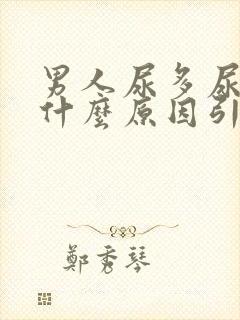 男人尿多尿
什麼原因引
鄭秀琴